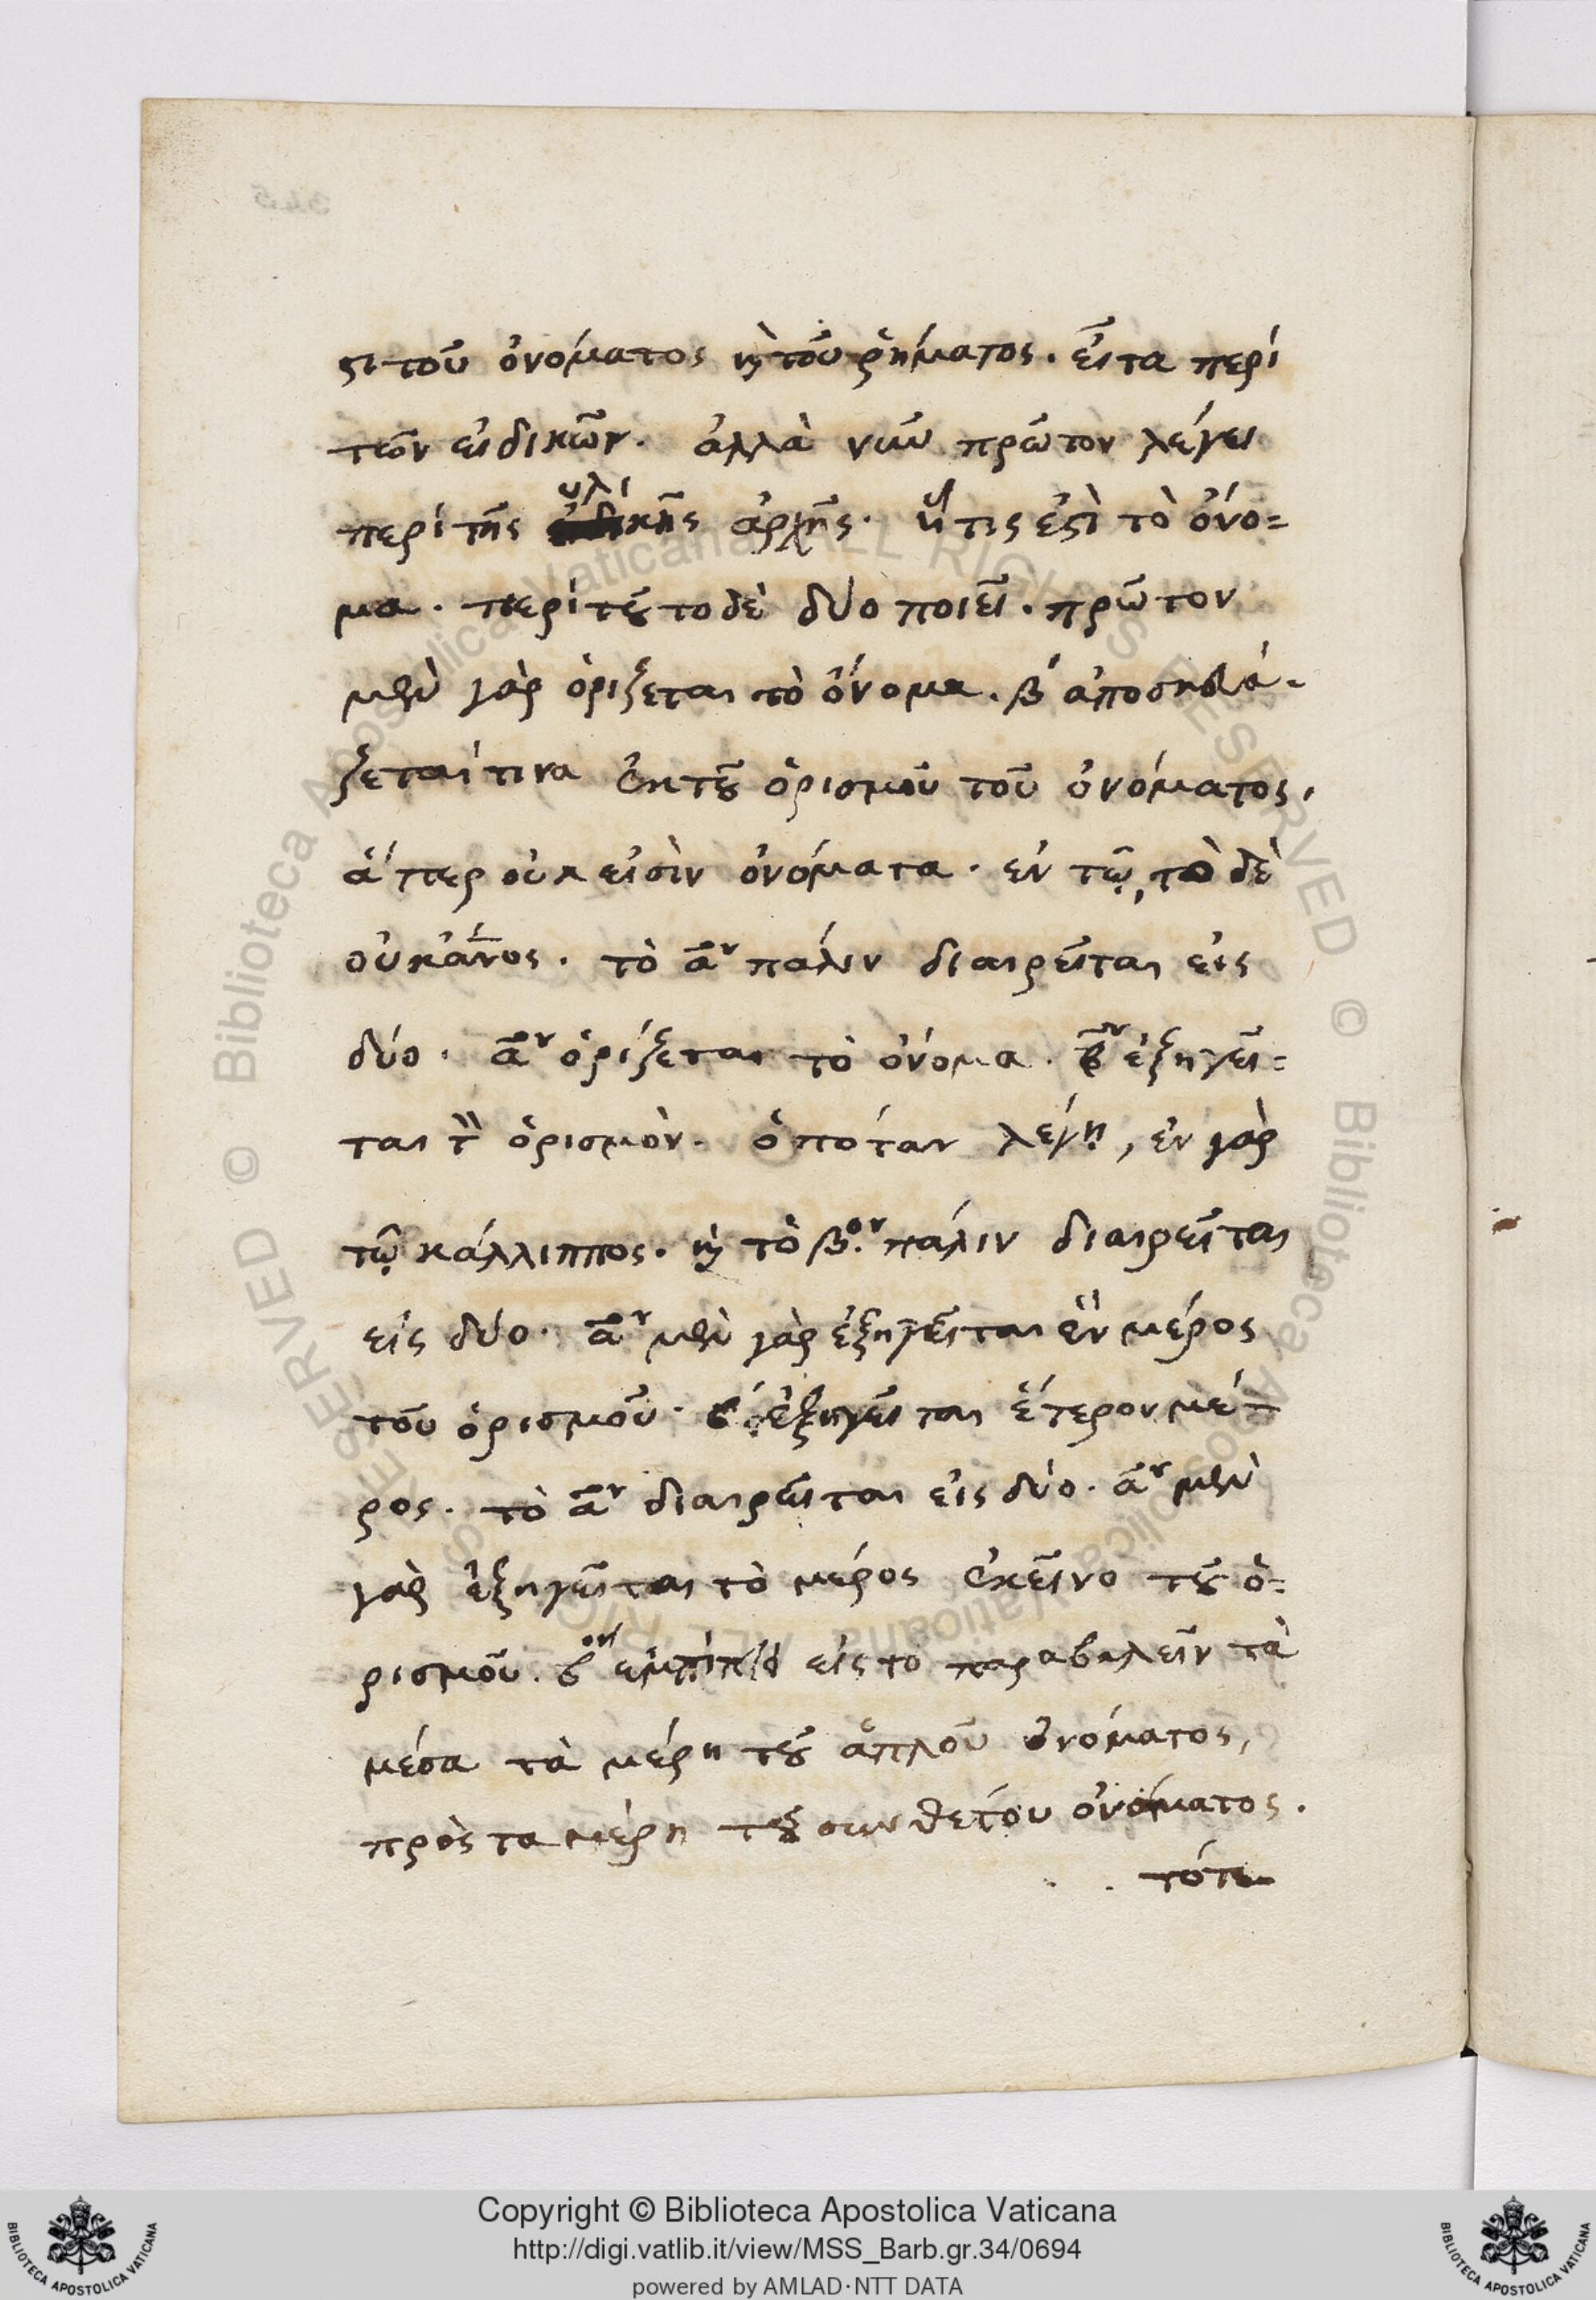 στι τοῦ ὀνόματος καὶ τοῦ ῥήματος. εἶτα περί
τῶν εἰδικῶν. ἀλλὰ νῦν πρῶτον λέγει
περί τῆς ὑλικῆς ἀρχῆς. ἥτις ἐστὶ τὸ ὄνο=
μα. περί τούτο δὲ δύο ποιεῖ. πρῶτον
μὲν γὰρ ὁρίζεται τὸ ὄνομα. β΄
ζεταί τινα ἐκ τοῦ ὁρισμοῦ τοῦ ὀνόματος,
ἅπερ οὐκ εἰσὶν ὀνόματα. ἐν τῷ, τὸ δὲ
οὐκ ἄνος. τὸ αον πάλιν διαιρεῖται εἰς
δύο. αον ὁρίζεται τὸ ὄνομα. βον ἐξηγεῖ=
ται τὸν ὁρισμὸν. ὁπόταν λέγῃ, ἐν γὰρ
τῷ κάλλιππος. καὶ τὸ βον πάλιν διαιρεῖται
εἰς δύο. αον μὲν γὰρ ἐξηγεῖται ἓν μέρος
τοῦ ὁρισμοῦ. β΄ ἐξηγεῖται ἕτερον μέ=
ρος. τὸ αον διαιρεῖται εἰς δύο. αον μὲν
γὰρ ἐξηγεῖται τὸ μέρος ἐκεῖνο τοῦ ὁ=
ρισμοῦ. βον εἰς τὸ παραβαλεῖν τὰ
μέσα τὰ μέρη τοῦ ἁπλοῦ ὀνόματος,
πρὸς τα μέρη τοῦ συνθέτου ὀνόματος.
Copyright © Biblioteca Apostolica Vaticana
http://digi.vatlib.it/view/MSS_Barb.gr.34/0694
powered by AMLAD·NTT DATA